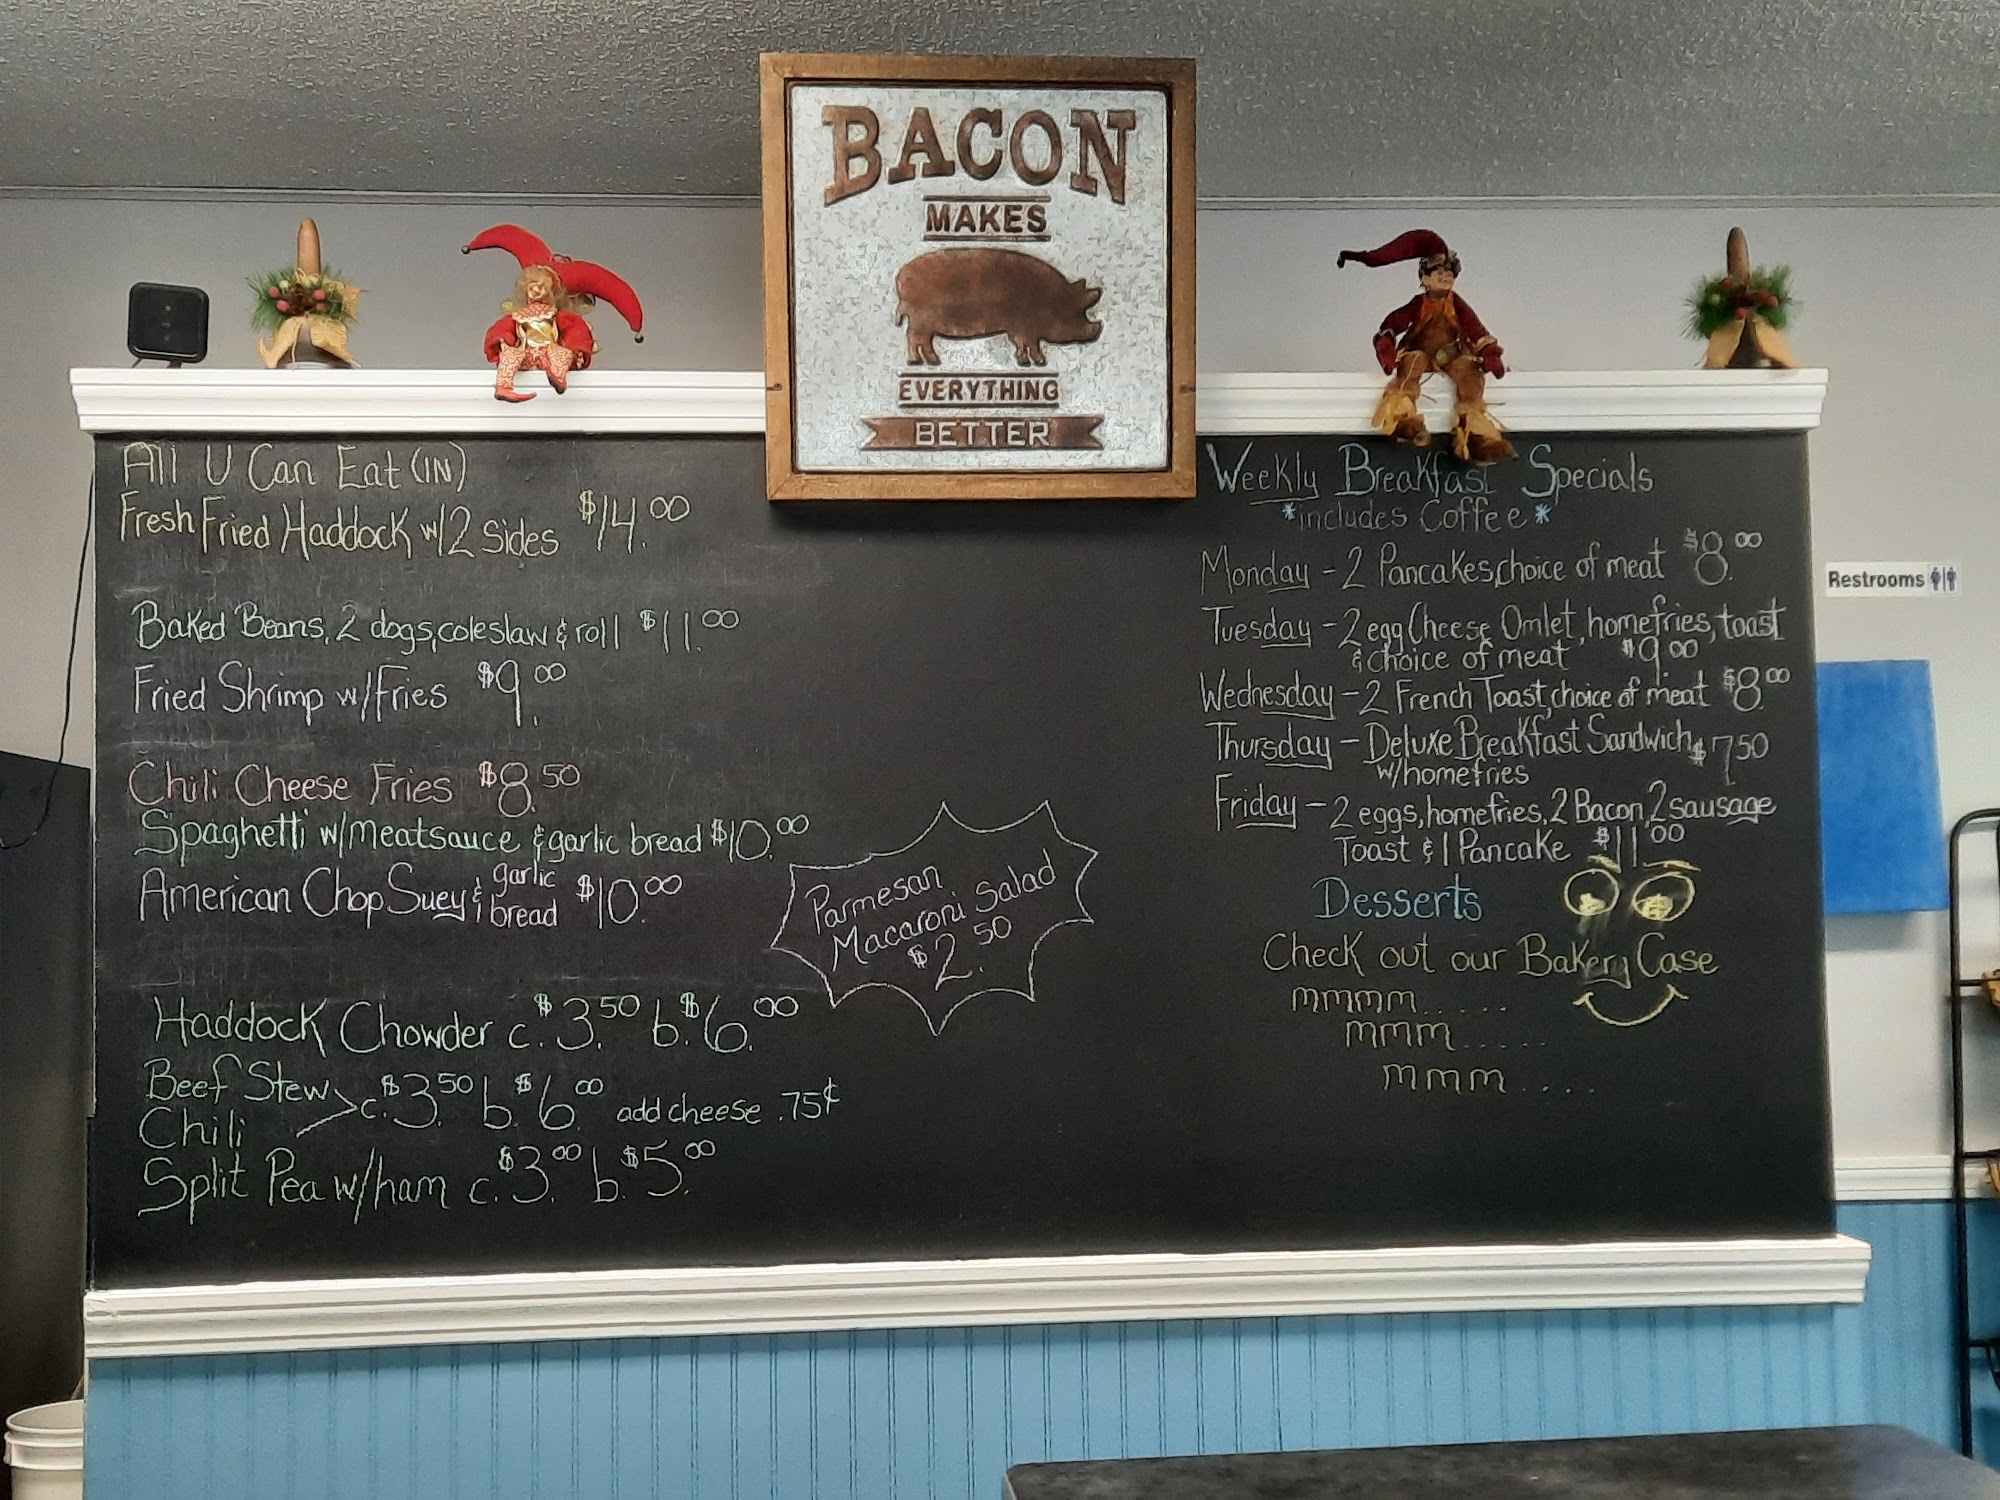 BACON
MAKES
EVERYTHING
BETTER
All U Can Eat (IN)
Fresh Fried Haddock w/2 sides $14.00
Baked Beans, 2 dogs, coleslaw & roll $11.00
Fried Shrimp w/Fries $9.00
Chili Cheese Fries $8.50
Spaghetti w/meatsauce & garlic bread $10.00
American Chop Suey & garlic bread $10.00
Parmesan
Macaroni Salad
$2.50
Haddock Chowder c. $3.50 b. $6.00
Beef Stew
Chili
c. $3.50 b. $6.00 add cheese .75¢
Split Pea w/ham c. $3.00 b. $5.00
Weekly Breakfast Specials
*includes Coffee*
Monday - 2 Pancakes, choice of meat $8.00
Tuesday - 2 egg Cheese Omlet, homefries, toast
& choice of meat $9.00
Wednesday - 2 French Toast, choice of meat $8.00
Thursday - Deluxe Breakfast Sandwich $7.50
w/homefries
Friday - 2 eggs, homefries, 2 Bacon, 2 sausage
Toast & 1 Pancake $11.00
Desserts
Check out our Bakery Case
mmmm.....
mmm.....
mmm....
Restrooms